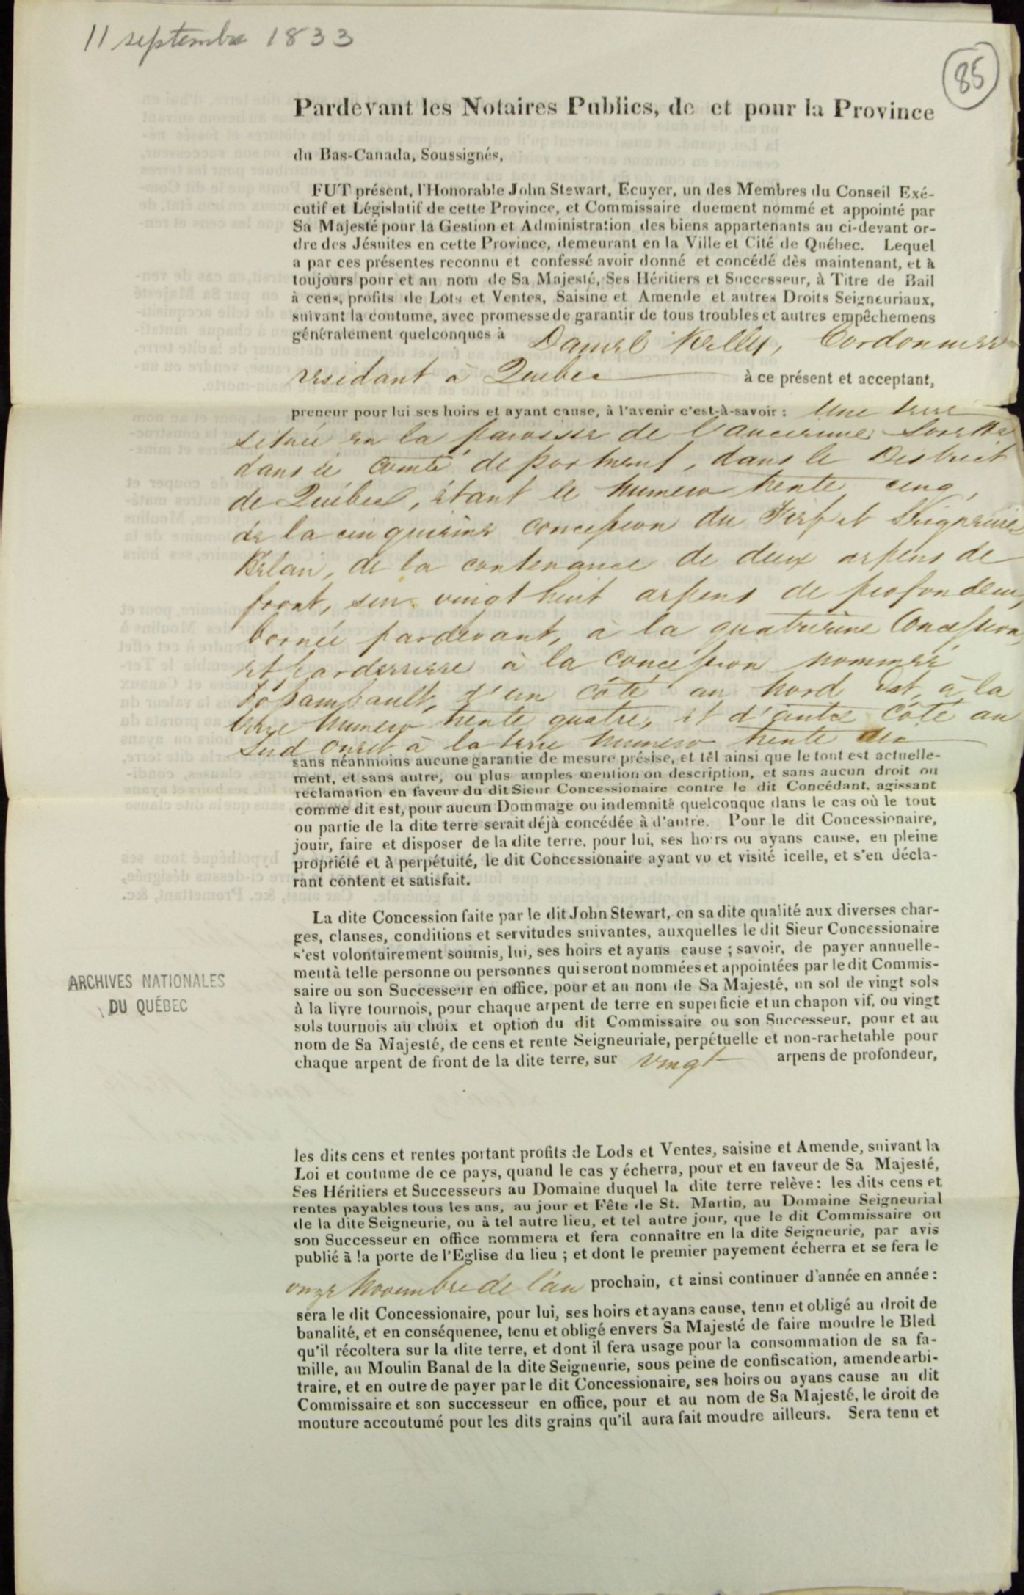 11 septembre 1833
85
Pardevant les Notaires Publics, de et pour la Province
du Bas-Canada, Soussignés,
FUT présent, l'Honorable John Stewart, Ecuyer, un des Membres du Conseil Exé-
cutif et Législatif de cette Province, et Commissaire duement nommé et appointé par
Sa Majesté pour la Gestion et Administration des biens appartenants au ci-devant or-
dre des Jésuites en cette Province, demeurant en la Ville et Cité de Québec. Lequel
a par ces présentes reconnu et confessé avoir donné et concédé dès maintenant, et à
toujours pour et au nom de Sa Majesté, Ses Héritiers et Successeur, à Titre de Bail
à cens, profits de Lots et Ventes, Saisine et Amende et autres Droits Seigneuriaux,
suivant la coutume, avec promesse de garantir de tous troubles et autres empêchemens
généralement quelconques à Daniel Kelly, Cordonnier
residant à Quebec à ce présent et acceptant,
preneur pour lui ses hoirs et ayant cause, à l'avenir c'est-à-savoir : Une terre
située en la paroisse de l'ancienne Lorette
dans le Comté de portneuf, dans le District
de Québec, étant le numero trente cinq,
de la cinquieme concession du Fief et Seigneurie
Bélair, de la contenance de deux arpens de
front, sur vingt huit arpens de profondeur,
bornée pardevant, à la quatrieme Concession,
et parderriere à la concession nommée
d'un côté au Nord Est, à la
terre numero trente quatre, et d'autre côté au
Sud Ouest à la terre numero trente
sans néanmoins aucune garantie de mesure présise, et tèl ainsi que le tout est actuelle-
ment, et sans autre, ou plus amples mention on description, et sans aucun droit ou
réclamation en faveur du dit Sieur Concessionaire contre le dit Concédant, agissant
comme dit est, pour aucun Dommage ou indemnité quelconque dans le cas où le tout
ou partie de la dite terre serait déjà concédée à d'autre. Pour le dit Concessionaire,
jouir, faire et disposer de la dite terre, pour lui, ses hoirs ou ayans cause, en pleine
propriété et à perpétuité, le dit Concessionaire ayant vu et visité icelle, et s'en décla-
rant content et satisfait.
La dite Concession faite par le dit John Stewart, en sa dite qualité aux diverses char-
ges, clauses, conditions et servitudes suivantes, auxquelles le dit Sieur Concessionaire
s'est volontairement soumis, lui, ses hoirs et ayans cause ; savoir, de payer annuelle-
ment à telle personne ou personnes qui seront nommées et appointées par le dit Commis-
saire ou son Successeur en office, pour et au nom de Sa Majesté, un sol de vingt sols
à la livre tournois, pour chaque arpent de terre en superficie et un chapon vif, ou vingt
sols tournois au choix et option du dit Commissaire ou son Successeur, pour et au
nom de Sa Majesté, de cens et rente Seigneuriale, perpétuelle et non-rachetable pour
chaque arpent de front de la dite terre, sur vingt arpens de profondeur,
ARCHIVES NATIONALES
DU QUÉBEC
les dits cens et rentes portant profits de Lods et Ventes, saisine et Amende, suivant la
Loi et coutume de ce pays, quand le cas y écherra, pour et en faveur de Sa Majesté,
Ses Héritiers et Successeurs au Domaine duquel la dite terre relève : les dits cens et
rentes payables tous les ans, au jour et Fête de St. Martin, au Domaine Seigneurial
de la dite Seigneurie, ou à tel autre lieu, et tel autre jour, que le dit Commissaire ou
son Successeur en office nommera et fera connaître en la dite Seigneurie, par avis
publié à la porte de l'Eglise du lieu ; et dont le premier payement écherra et se fera le
onze Novembre de l'an prochain, et ainsi continuer d'année en année :
sera le dit Concessionaire, pour lui, ses hoirs et ayans cause, tenu et obligé au droit de
banalité, et en conséquenee, tenu et obligé envers Sa Majesté de faire moudre le Bled
qu'il récoltera sur la dite terre, et dont il fera usage pour la consommation de sa fa-
mille, au Moulin Banal de la dite Seigneurie, sous peine de confiscation, amende arbi-
traire, et en outre de payer par le dit Concessionaire, ses hoirs ou ayans cause au dit
Commissaire et son successeur en office, pour et au nom de Sa Majesté, le droit de
mouture accoutumé pour les dits grains qu'il aura fait moudre ailleurs. Sera tenu et